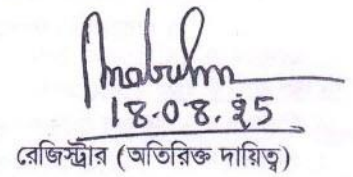 18.08.25
রেজিস্ট্রার (অতিরিক্ত দায়িত্ব)